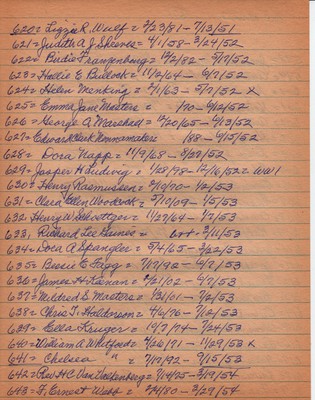 620 = Lizzie R. Wulf = 2/23/81 - 7/13/51
621 = Judith A. J. Skeives = 4/1/58 - 3/24/52
622 = Birdie Frangenberg = 10/2/82 - 5/17/52
623 = Hadie E. Bullock = 11/2/64 - 6/7/52
624 = Helen Menking = 2/1/63 - 5/7/52 X
625 = Emma Jane Masters = /70 - 6/2/52
626 = George A. Marshall = 12/20/65 - 6/13/52
627 = Edward Clark Nonnamaker = /88 - 9/15/52
628 = Dora Napp = 11/9/68 - 8/27/52
629 = Jasper Haudwig = 1/28/98 - 12/16/52 = WW1
630 = Henry Rasmussen = 2/10/90 - 1/2/53
631 = Clara Ellen Woodcock = 3/10/09 - 1/5/53
632 Henry W. Schoettger = 11/27/64 - 1/7/53
633 Richard Lee Haines = 3/11/53
634 = Dora A. Spangler = 5/4/65 - 3/22/53
635 = Bessie E. Fagg = 7/17/92 - 6/7/53
636 = James H. Keenan = 2/21/02 - 6/7/53
637 = Mildred S. Masters = 1/31/01 - 7/2/53
638 = Chris T. Halderson = 4/6/76 - 7/12/53
639 = Ella Kruger = 12/7/74 - 7/24/53
640 = William A. Whitford = 2/26/71 - 11/29/53 X
641 = Chelsea " = 7/19/92 - 7/15/53
642 = Rev. H. C. Von Valkenberg = 7/14/25 - 3/19/54
643 = F. Ernest Webb = 2/24/80 - 3/27/54